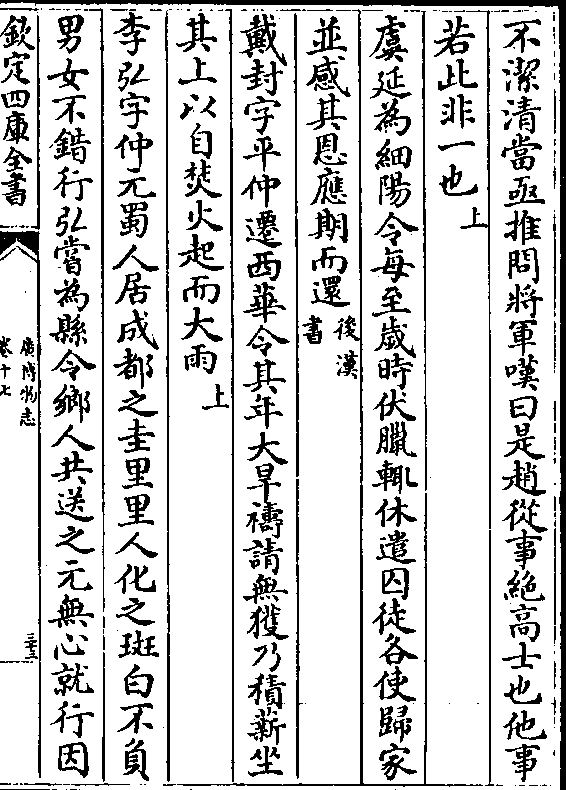 不潔清當亟推問將軍嘆曰是趙從事絶高士也他事
若此非一也上
虞延為細陽令每至歲時伏臘輒休遣囚徒各使歸家
並感其恩應期而還後漢書
戴封字平仲遷西華令其年大旱禱請無獲乃積薪坐
其上以自焚火起而大雨上
李弘字仲元蜀人居成都之圭里里人化之斑白不負
男女不錯行弘嘗為縣令鄉人共送之元無心就行因
欽定四庫全書
廣博物志
卷十七
三十三